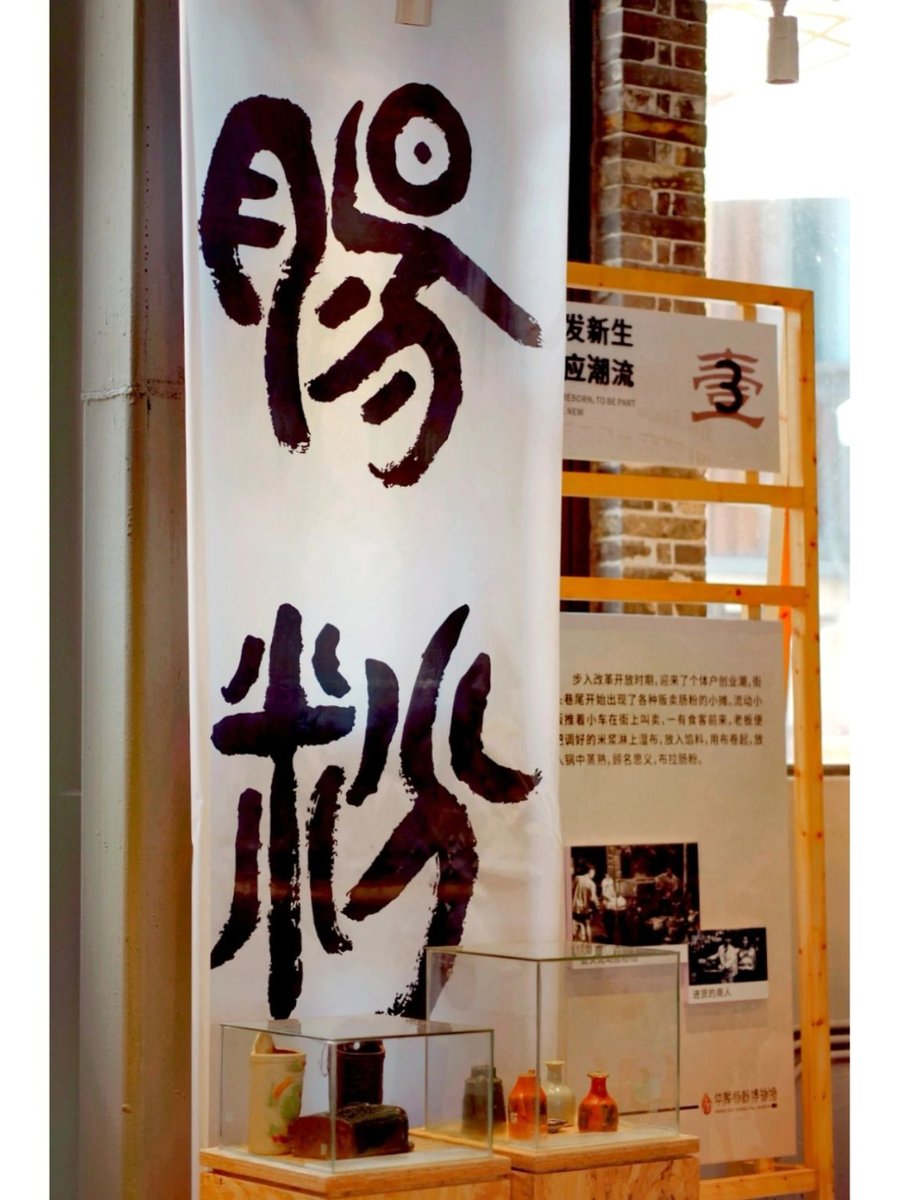 腸粉
发新生
应潮流
REBORN, TO BE PART
NEW
壹
3
步入改革开放时期，迎来了个体户创业潮，街
巷尾开始出现了各种贩卖肠粉的小摊。流动小
推着小车在街上叫卖，一有食客前来，老板便
把调好的米浆淋上湿布，放入馅料，用布卷起，放
入锅中蒸熟，顾名思义，布拉肠粉。
进货的商人